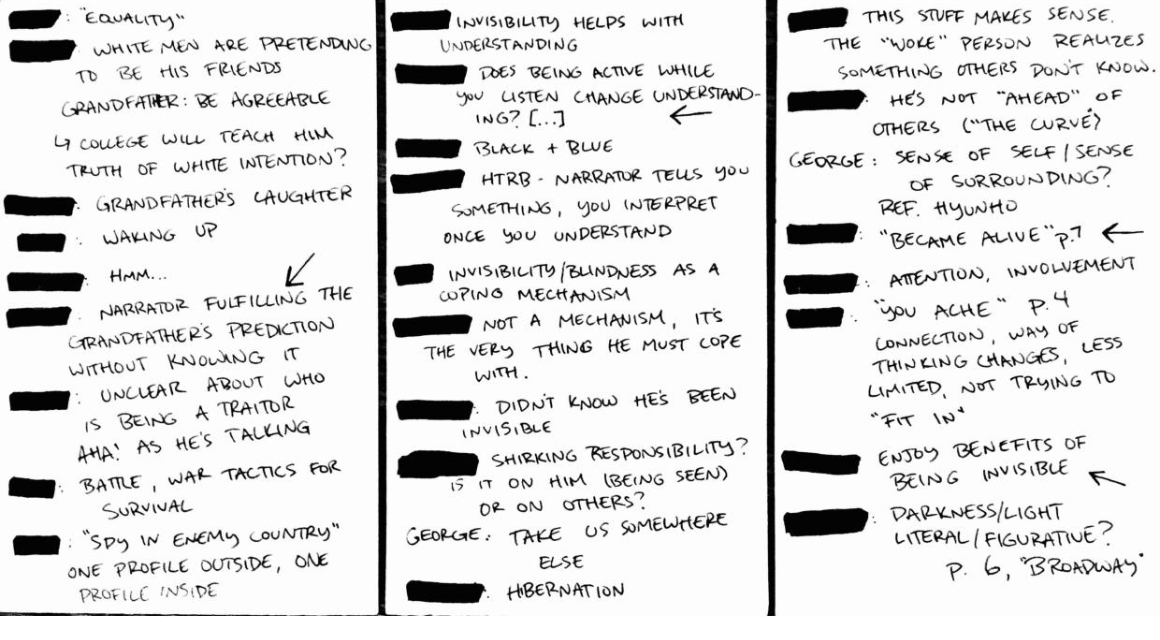 : "EQUALITY"
: WHITE MEN ARE PRETENDING
TO BE HIS FRIENDS
GRANDFATHER: BE AGREEABLE
↳ COLLEGE WILL TEACH HIM
TRUTH OF WHITE INTENTION?
: GRANDFATHER'S LAUGHTER
: WAKING UP
: HMM...
: NARRATOR FULFILLING THE
GRANDFATHER'S PREDICTION
WITHOUT KNOWING IT
: UNCLEAR ABOUT WHO
IS BEING A TRAITOR
AHA! AS HE'S TALKING
: BATTLE, WAR TACTICS FOR
SURVIVAL
: "SPY IN ENEMY COUNTRY"
ONE PROFILE OUTSIDE, ONE
PROFILE INSIDE
INVISIBILITY HELPS WITH
UNDERSTANDING
: DOES BEING ACTIVE WHILE
YOU LISTEN CHANGE UNDERSTAND-
ING? [...] ←
: BLACK + BLUE
: HTRB - NARRATOR TELLS YOU
SOMETHING, YOU INTERPRET
ONCE YOU UNDERSTAND
INVISIBILITY/BLINDNESS AS A
COPING MECHANISM
: NOT A MECHANISM, IT'S
THE VERY THING HE MUST COPE
WITH.
: DIDN'T KNOW HE'S BEEN
INVISIBLE
: SHIRKING RESPONSIBILITY?
IS IT ON HIM (BEING SEEN)
OR ON OTHERS?
GEORGE: TAKE US SOMEWHERE
ELSE
: HIBERNATION
: THIS STUFF MAKES SENSE.
THE "WOKE" PERSON REALIZES
SOMETHING OTHERS DON'T KNOW.
: HE'S NOT "AHEAD" OF
OTHERS ("THE CURVE")
GEORGE: SENSE OF SELF/SENSE
OF SURROUNDING?
REF. HYUNHO
: "BECAME ALIVE" p.7 ←
: ATTENTION, INVOLVEMENT
: "YOU ACHE" P. 4
CONNECTION, WAY OF
THINKING CHANGES, LESS
LIMITED, NOT TRYING TO
"FIT IN"
: ENJOY BENEFITS OF
BEING INVISIBLE
: DARKNESS/LIGHT
LITERAL/FIGURATIVE?
P. 6, "BROADWAY"